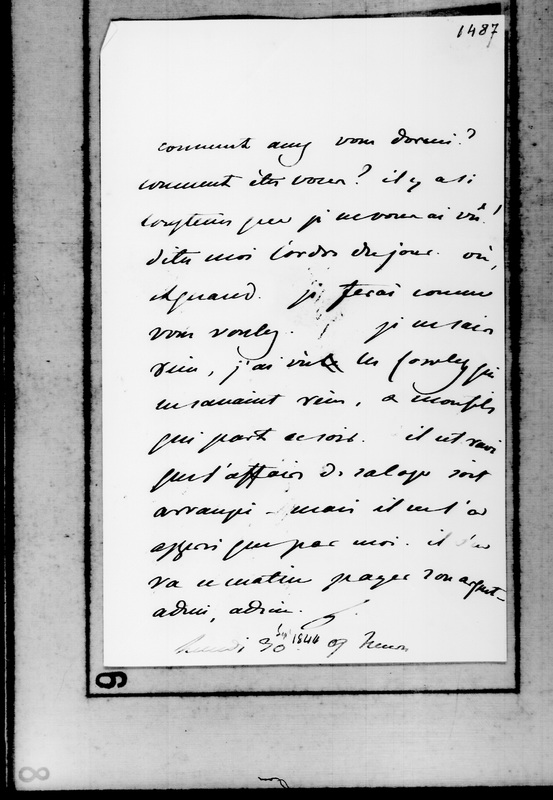 1487
comment avez vous dormi?
comment êtes vous? il y a si
longtems que je ne vous ai vû!
dites moi l'ordre du jour. où,
et quand. je ferai comme
vous voulez. je ne sais
rien, j'ai vu les Cowley qui
ne savaient rien, a mon fils
qui part ce soir. il est ravi
que l'affaire de salage soit
arrangé - mais il ne l'a
appris que par moi. il s'en
va ce matin payer son argent-
adieu, adieu. G.
lundi 30 Sep 1844 9 heures
9
8